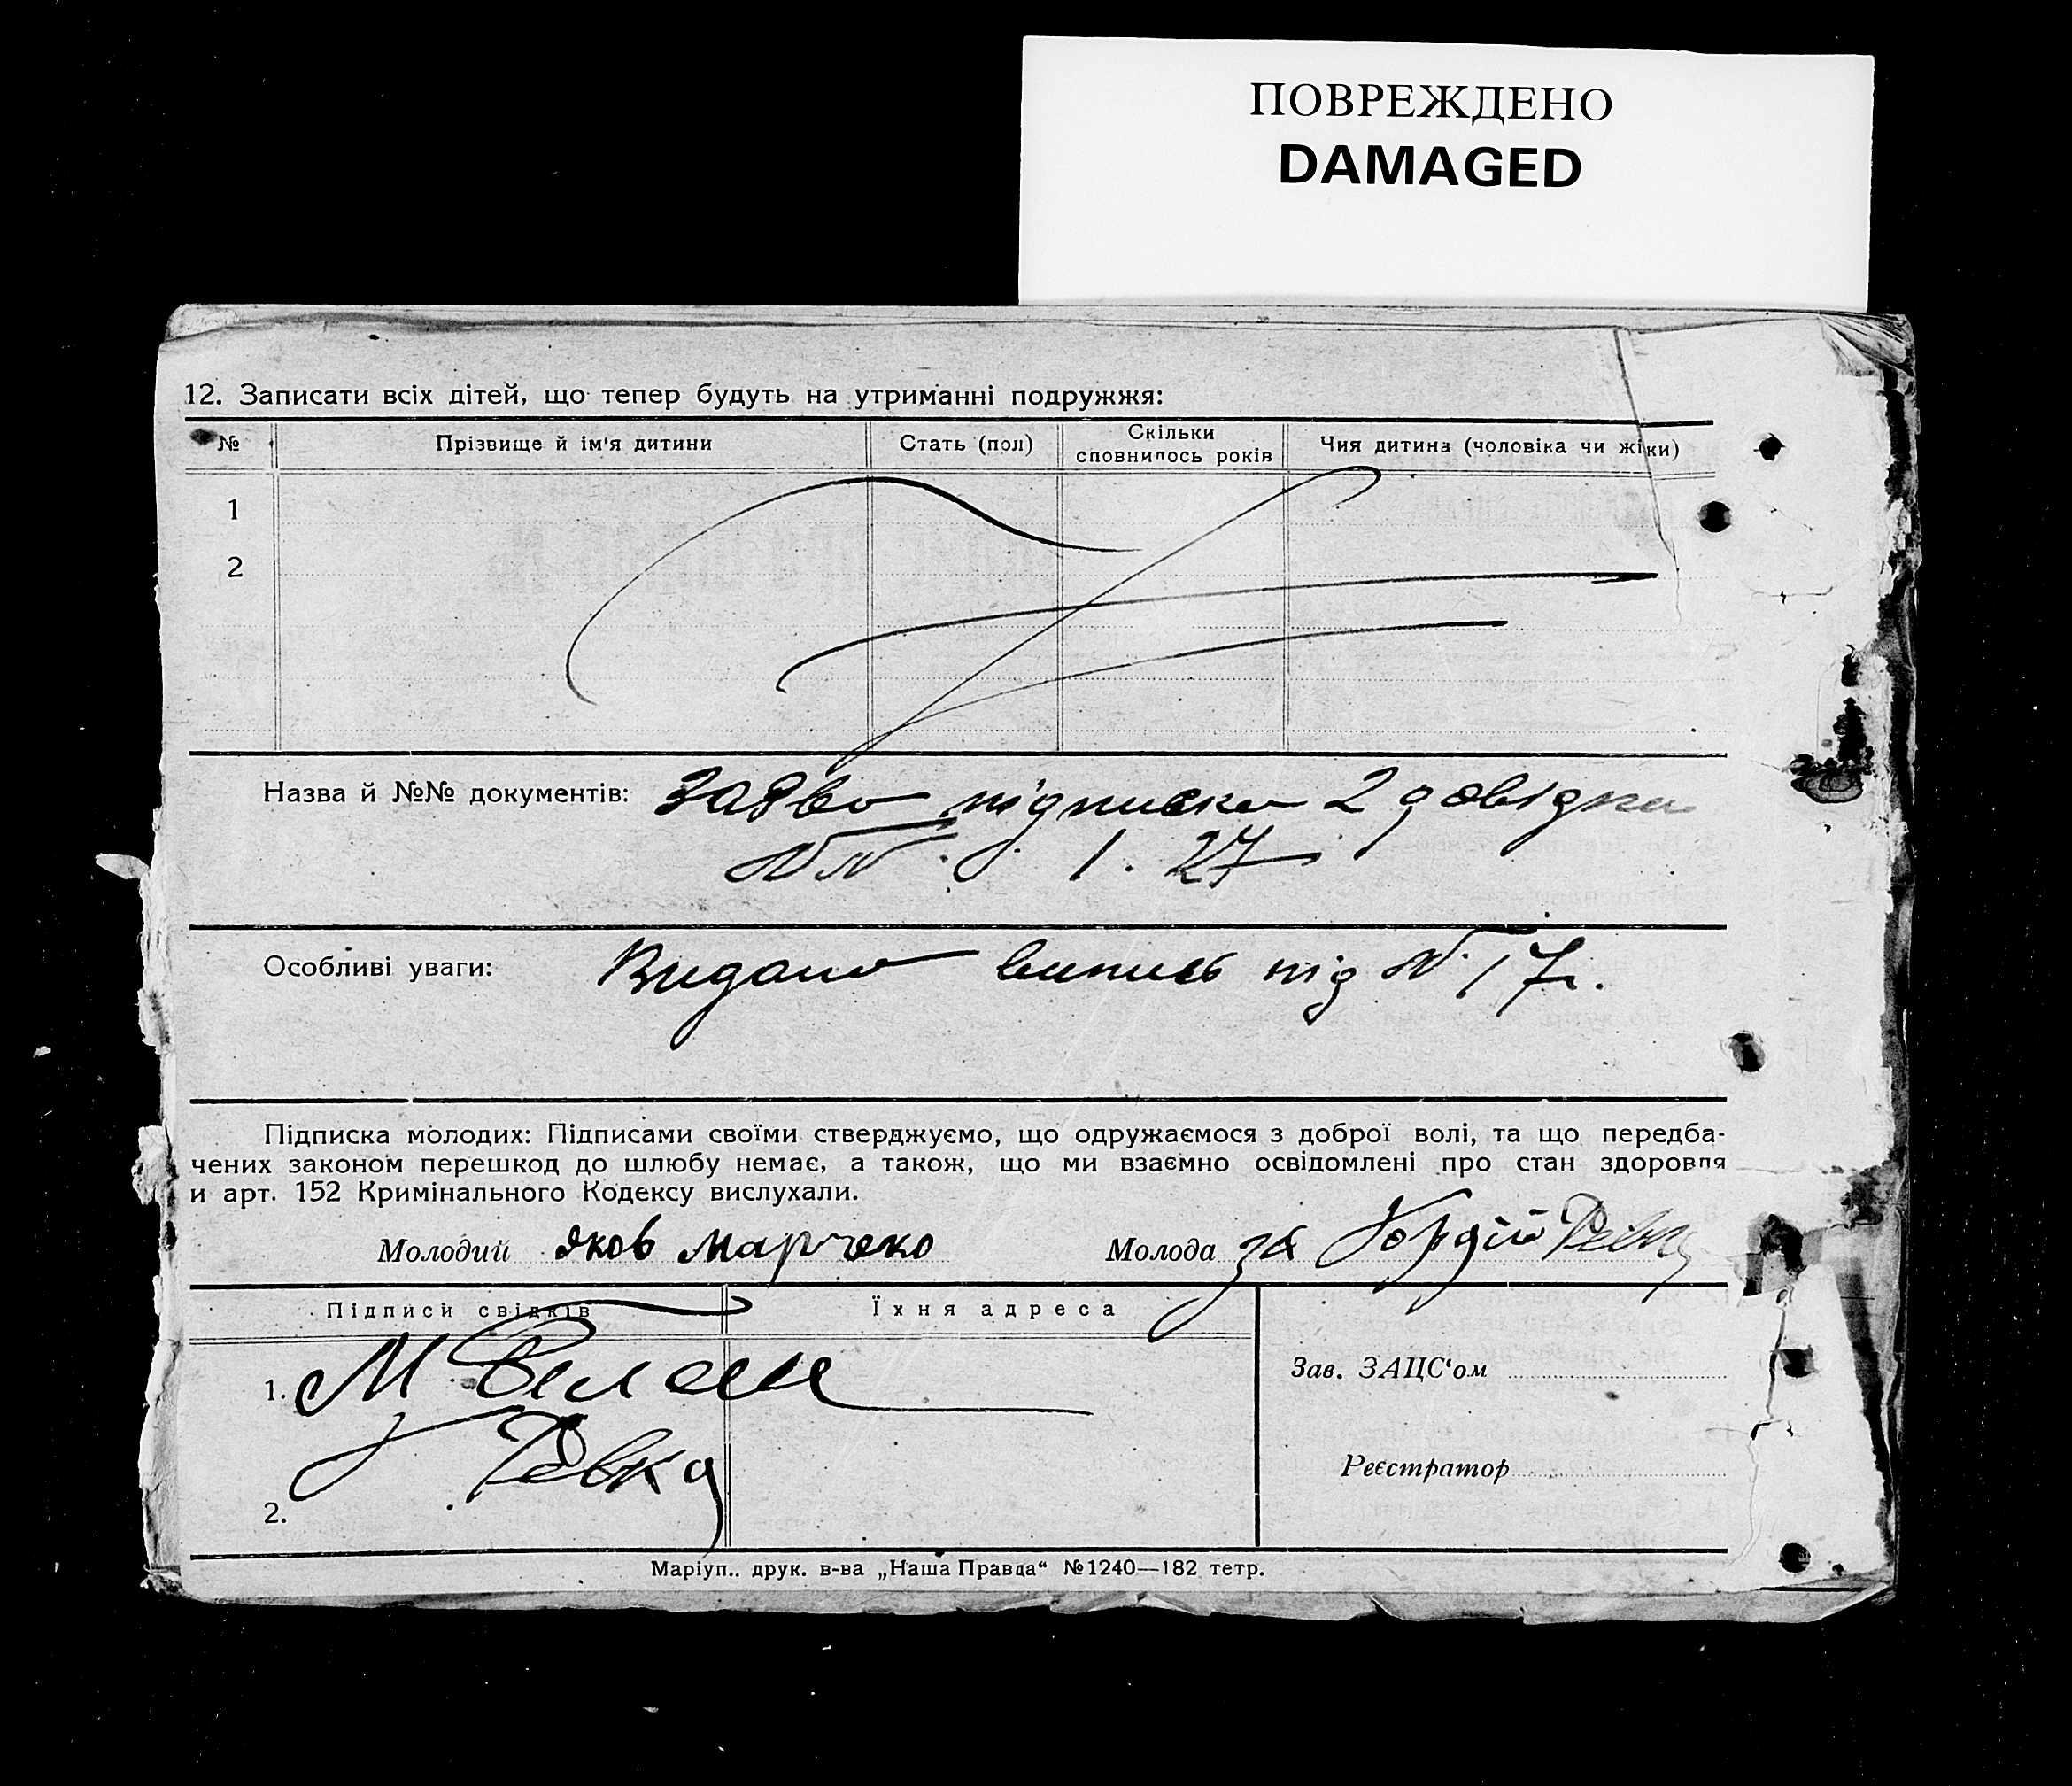 ПОВРЕЖДЕНО
DAMAGED
12. Записати всіх дітей, що тепер будуть на утриманні подружжя:
№ Прізвище й ім'я дитини Стать (пол) Скільки сповнилось років Чия дитина (чоловіка чи жінки)
1
2
Назва й №№ документів: Заява підписка 2 довідки
№№ 1. 27
Особливі уваги: Видано випись під № 17.
Підписка молодих: Підписами своїми стверджуємо, що одружаємося з доброї волі, та що передба-
чених законом перешкод до шлюбу немає, а також, що ми взаємно освідомлені про стан здоровля
и арт. 152 Кримінального Кодексу вислухали.
Молодий Яков Марченко Молода за Гордій Ревка
Підписи свідків Їхня адреса
1. М Билан
Зав. ЗАЦС‘ом
Ревка
Реєстратор
2.
Маріуп.. друк. в-ва „Наша Правда“ №1240—182 тетр.